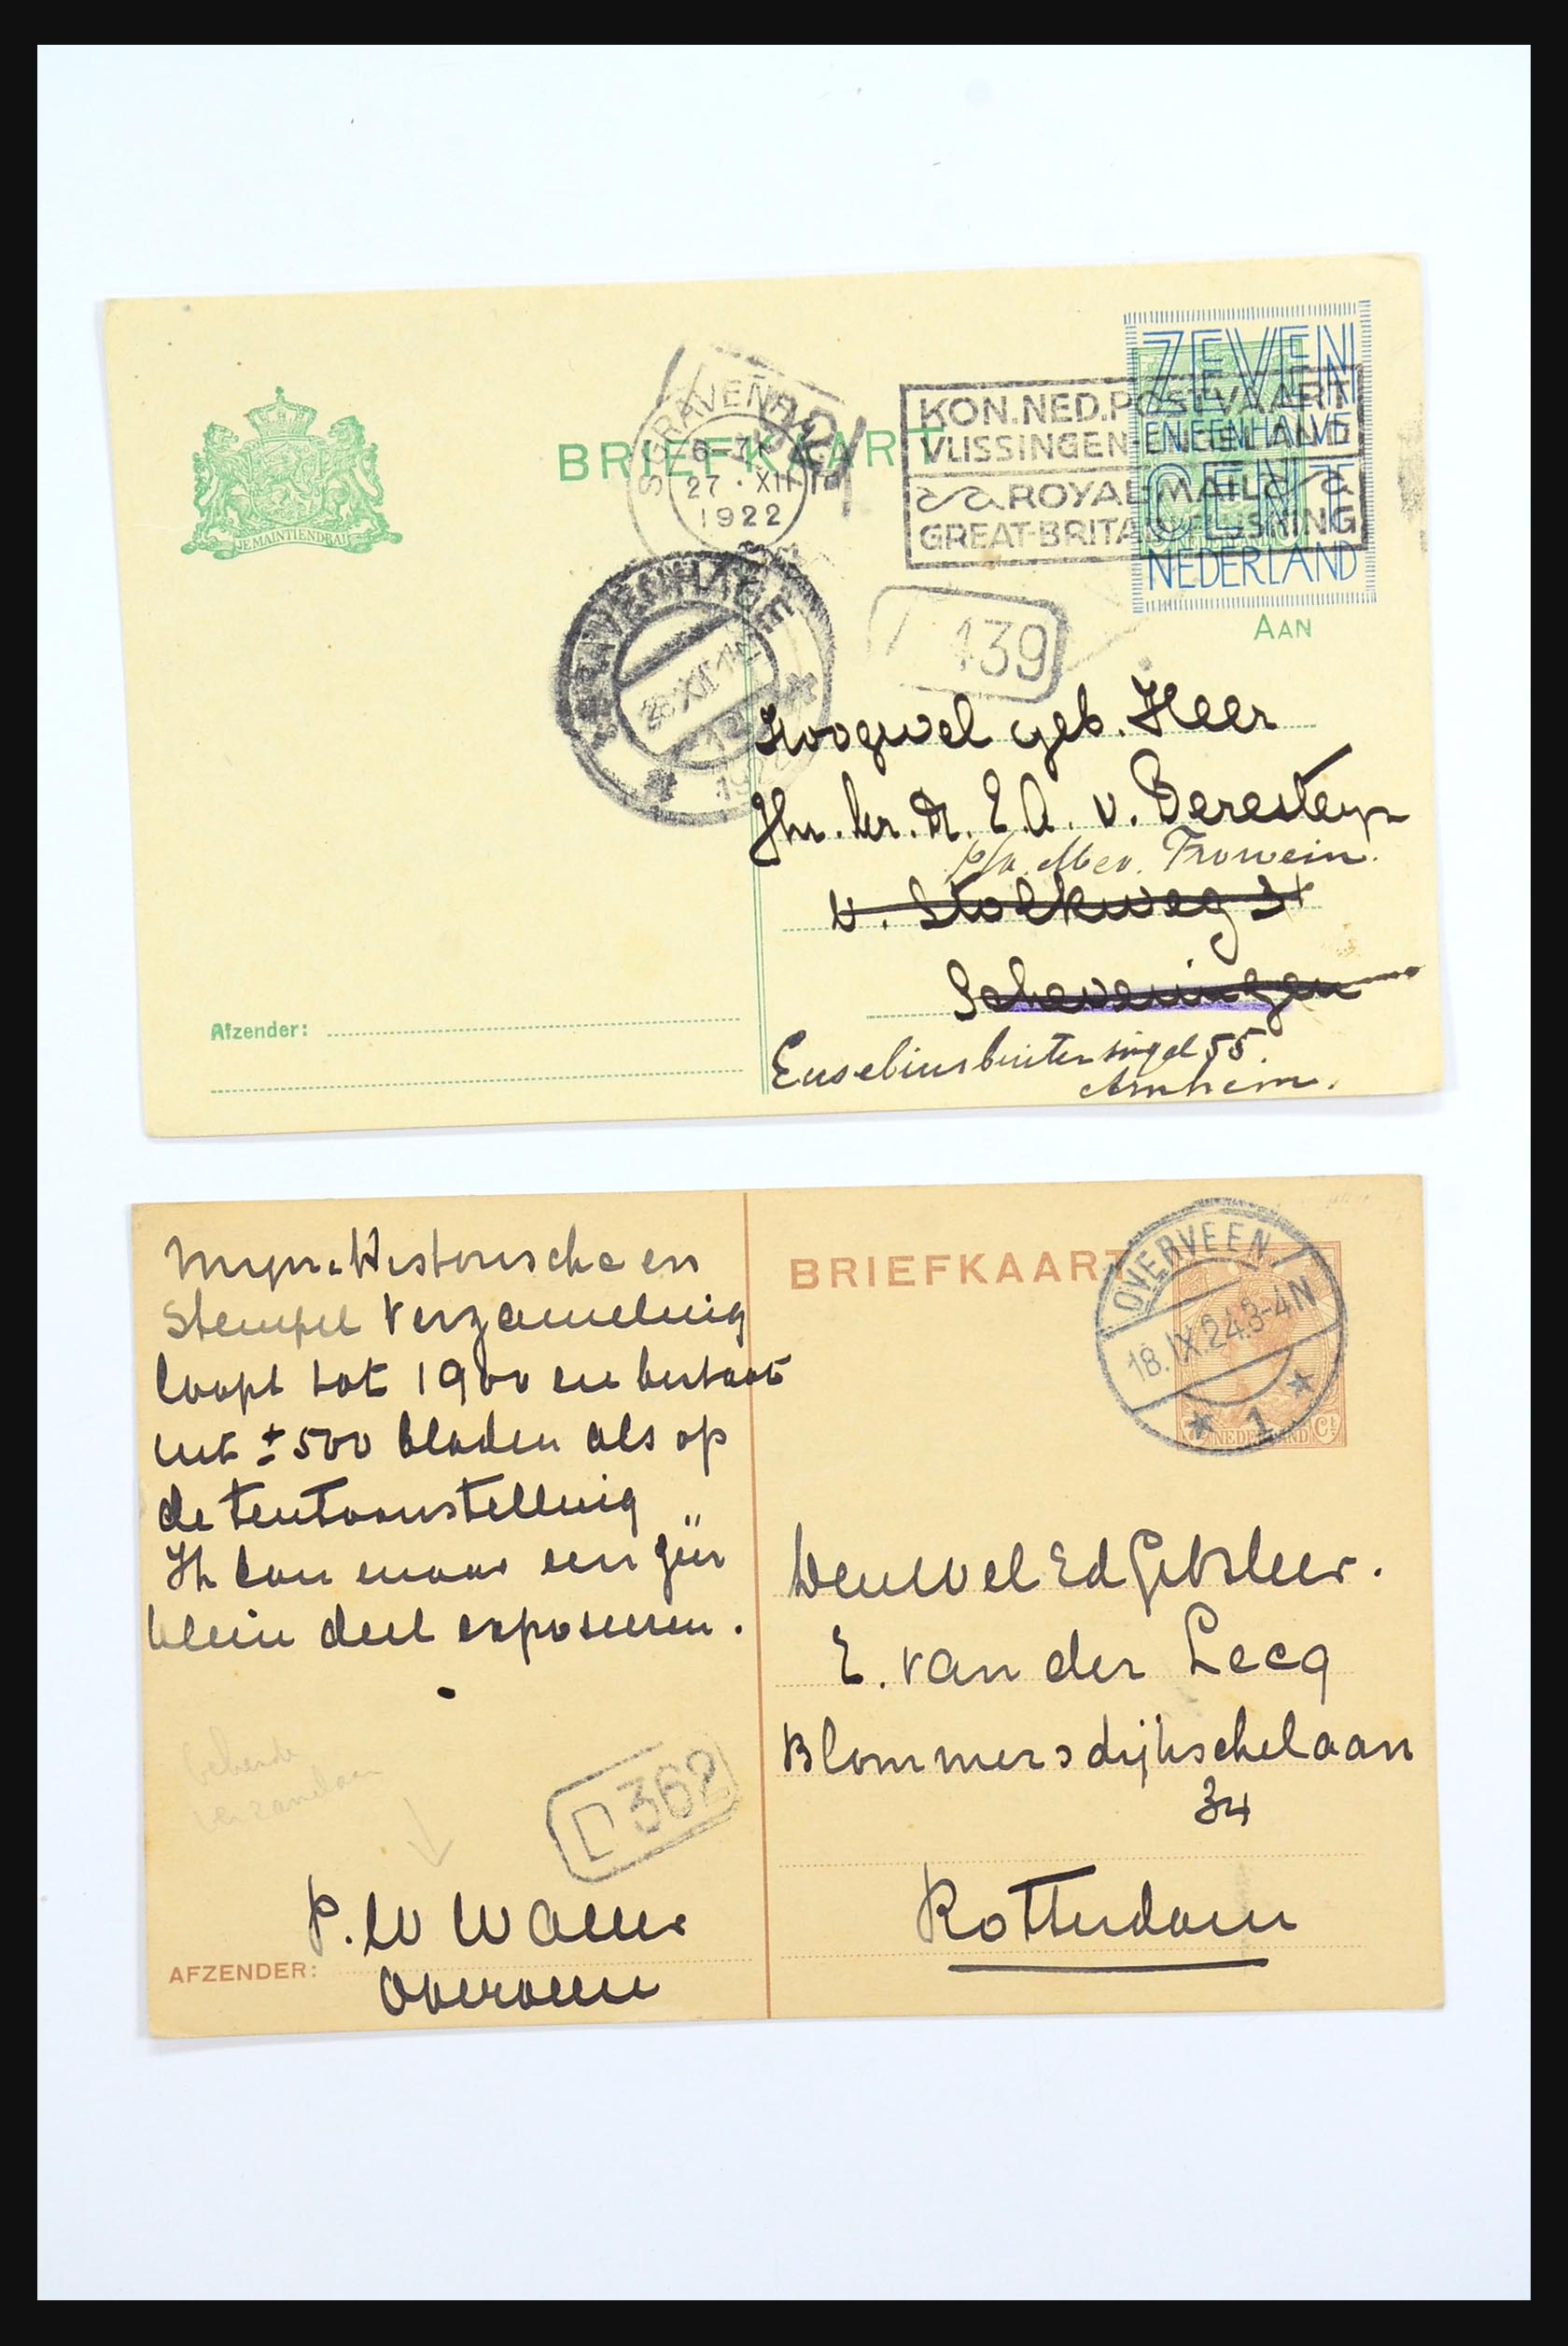 BRIEFKAART
'S GRAVENHAGE
6-7N
27 · XII
1922
KON. NED. POSTVAART
VLISSINGEN-ENGELAND
ROYAL MAIL
GREAT-BRITAIN-FLUSHING
ZEVEN
EN EEN HALVE
CENT
NEDERLAND
JE MAINTIENDRAI
'S GRAVENHAGE
28 XII
1922
139
AAN
Hoogwel geb. Heer
Jhr. Mr. Dr. E.A. v. Beresteyn
p/a. Mev. Frowein.
v. Stolkweg 31
Scheveningen
Eusebiusbuitensingel 55.
Arnhem.
Afzender:
BRIEFKAART
OVERVEEN
18.IX.24.3-4N
1
NEDERLAND Ct
Mijn Historische en
Stempel Verzameling
loopt tot 1900 en bestaat
uit ± 500 bladen als op
de tentoonstelling
Ik kan maar een
klein deel exposeeren.
WelEdGeb. Heer.
E. van der Leeq
Blommersdijkschelaan
34
Rotterdam
bekende
verzamelaar
D 362
P. W Waller
AFZENDER:
Overveen